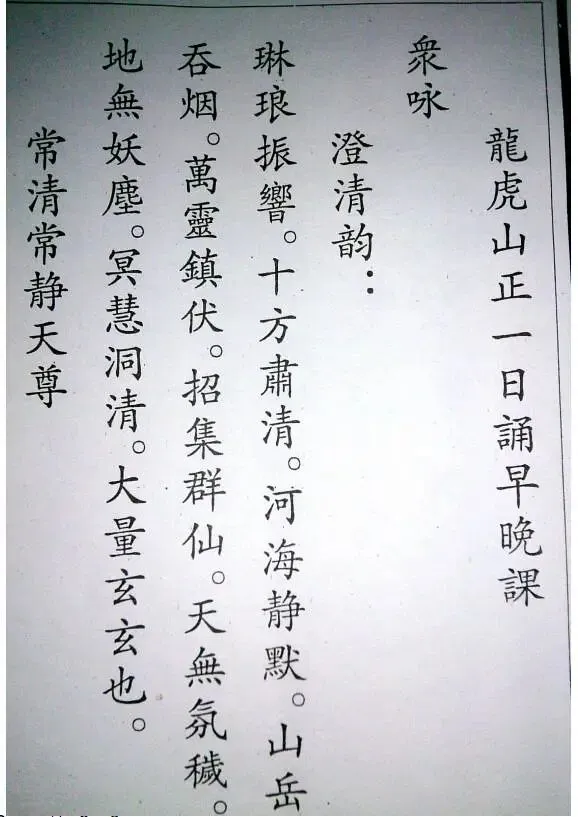 龍虎山正一日誦早晚課
衆咏
澄清韵：
琳琅振響。十方肅清。河海静默。山岳
吞烟。萬靈鎮伏。招集群仙。天無氛穢。
地無妖塵。冥慧洞清。大量玄玄也。
常清常静天尊